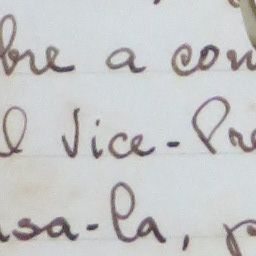 bre a con
l Vice-Pre
usa-la, p